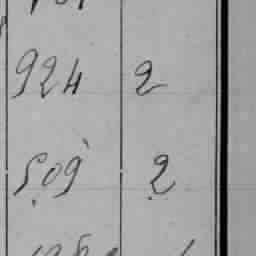 924 2
509 2